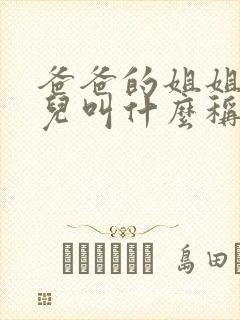 爸爸的姐姐
兒叫什麼稱
島田